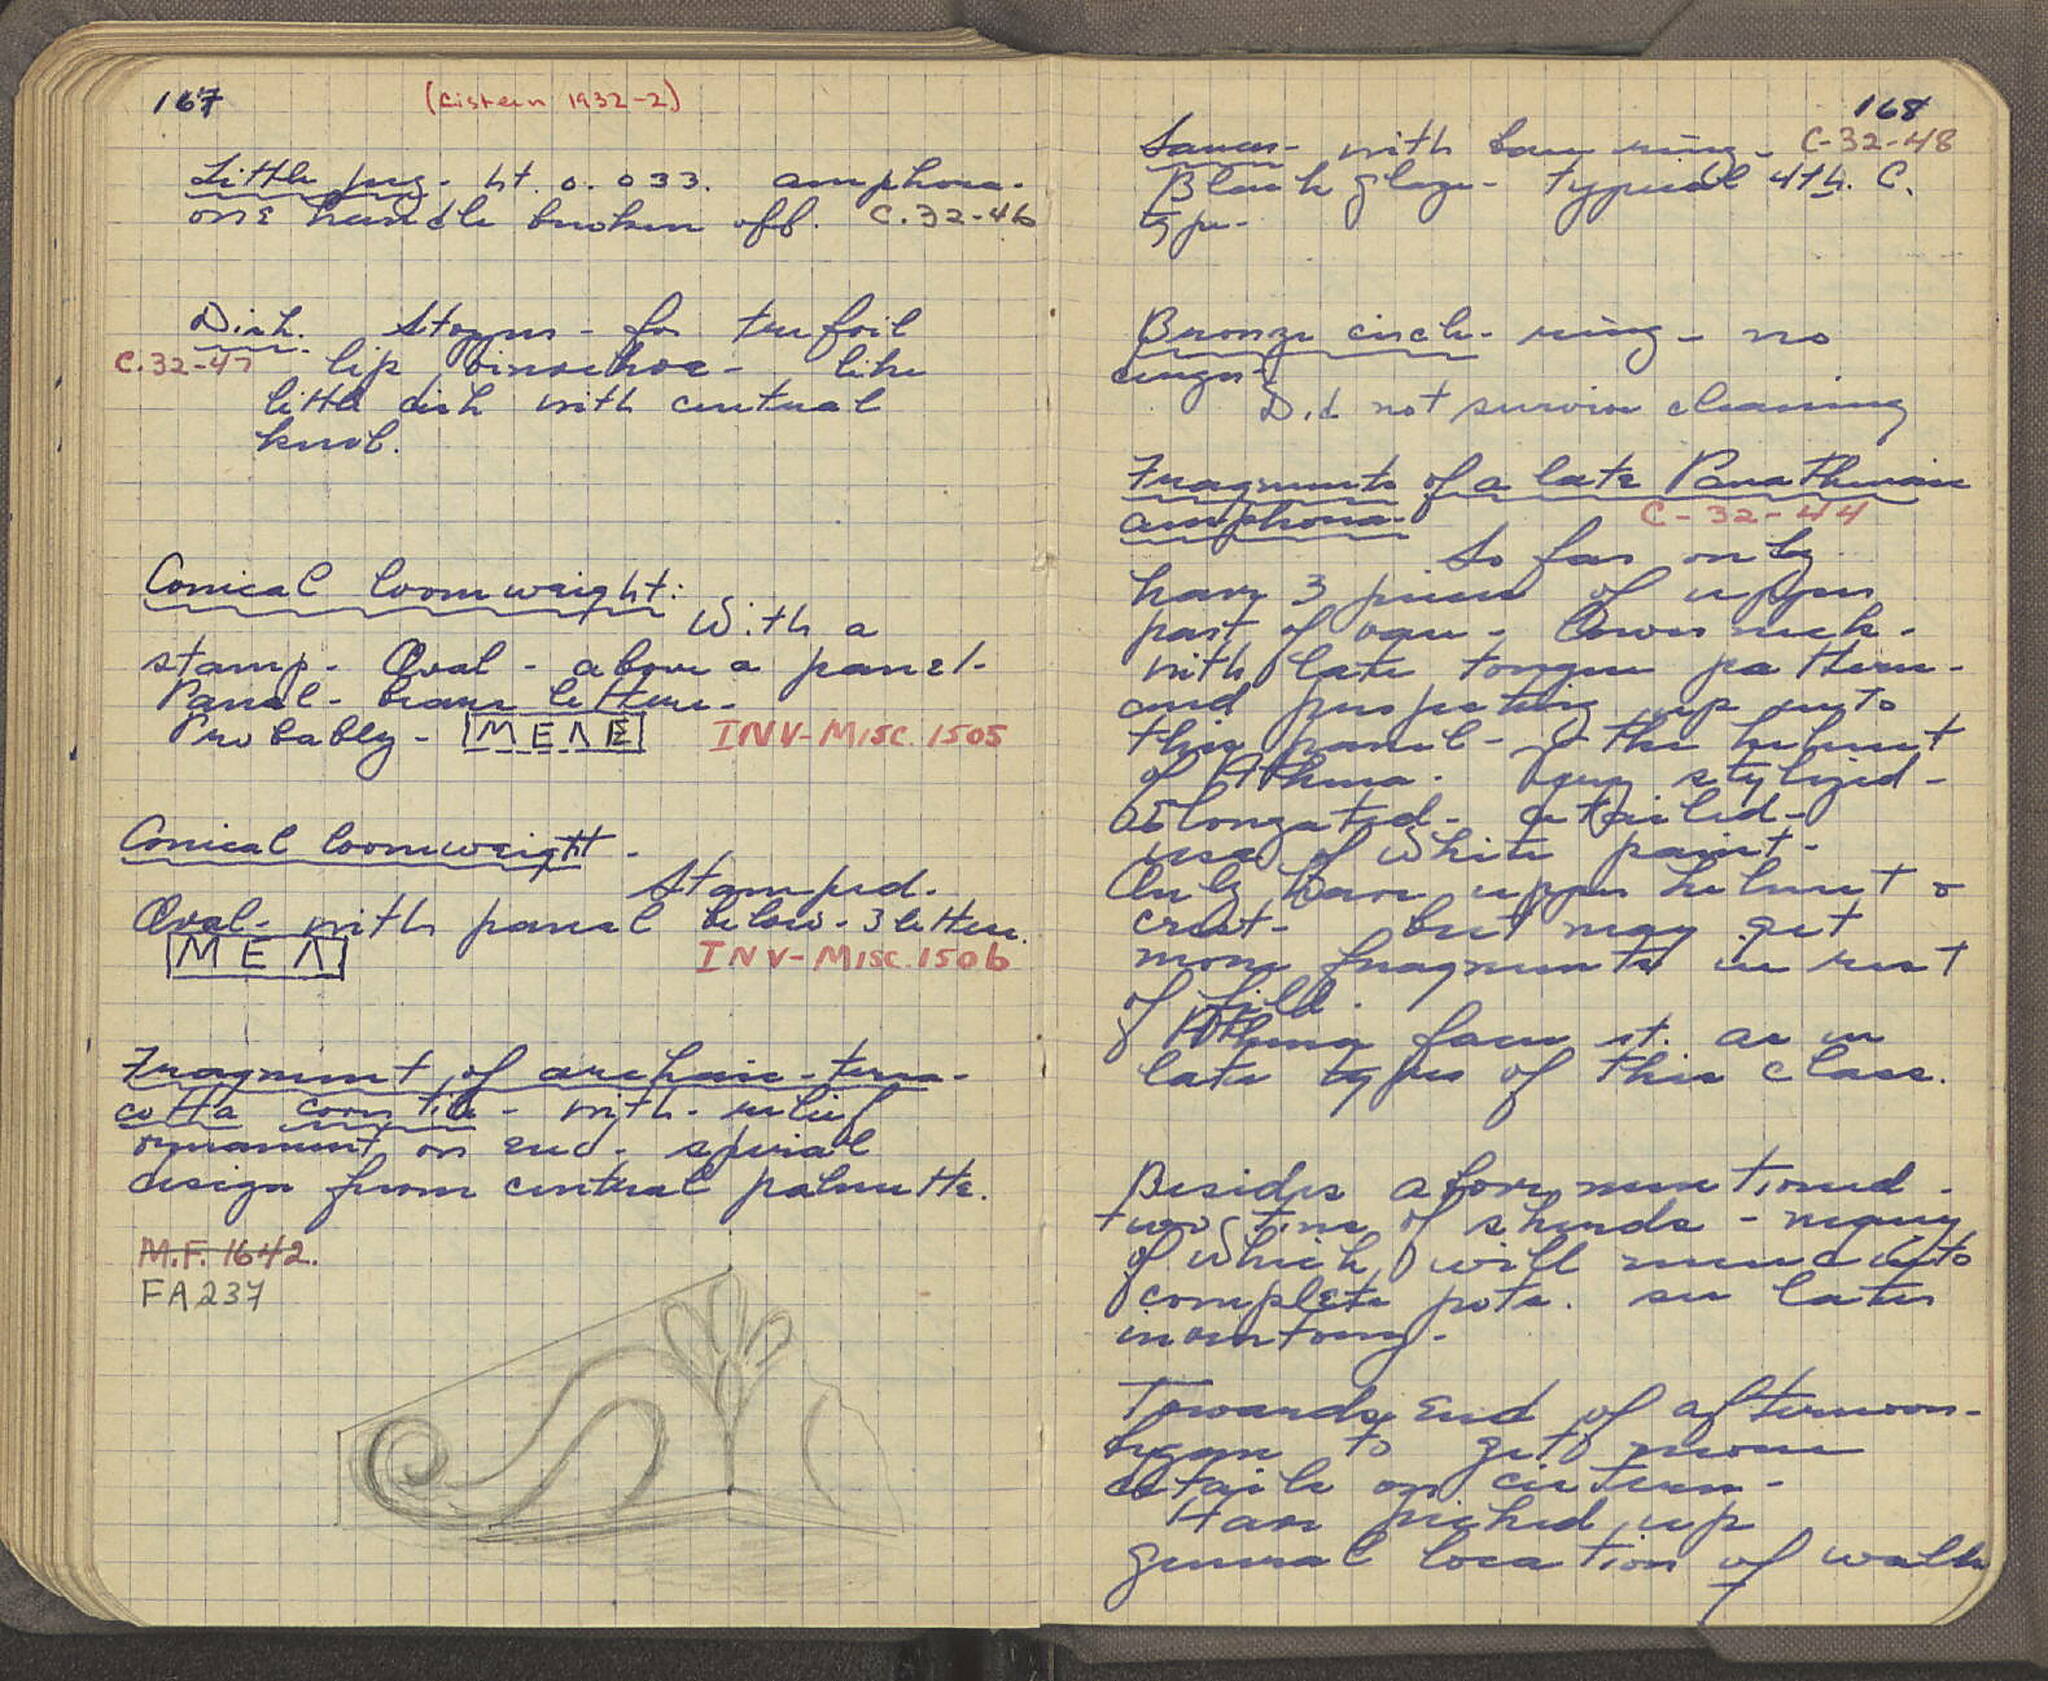 167
(Cistern 1932-2)
Little jug - ht. 0.033. amphora-
one handle broken off. C.32-46
Dish. Stopper - for trefoil
C.32-47 lip oinochoe - like
little dish with central
knob.
Conical loomweight:
With a
stamp - Oval - above a panel-
Panel - bears letters -
Probably - ΜΕΛΕ INV-MISC. 1505
Conical loomweight -
Stamped.
Oval - with panel below - 3 letters.
ΜΕΛ
INV-MISC. 1506
Fragment of archaic - terra-
cotta - with - relief
ornament on end - spiral
design from central palmette.
M.F. 1642.
FA 237
168
Saucer - with base ring - C-32-48
Black glaze - typical 4th. C.
type -
Bronze circle - ring - no
Did not survive cleaning
Fragments of a late Panathenaic
amphora - C-32-44
So far only
have 3 pieces of upper
part of vase - Lower neck -
with late tongue pattern -
and projecting up into
this panel - the helmet
of Athena. Very stylized -
elongated - detailed -
use of white paint -
Only have upper helmet &
crest - but may get
more fragments in rest
of fill.
Athena faces rt. as in
late types of this class.
Besides afore mentioned -
two tins of sherds - many
of which will mend into
complete pots. see later
inventory -
Towards end of afternoon -
began to get more
details on cistern -
Have picked up
general location of walls